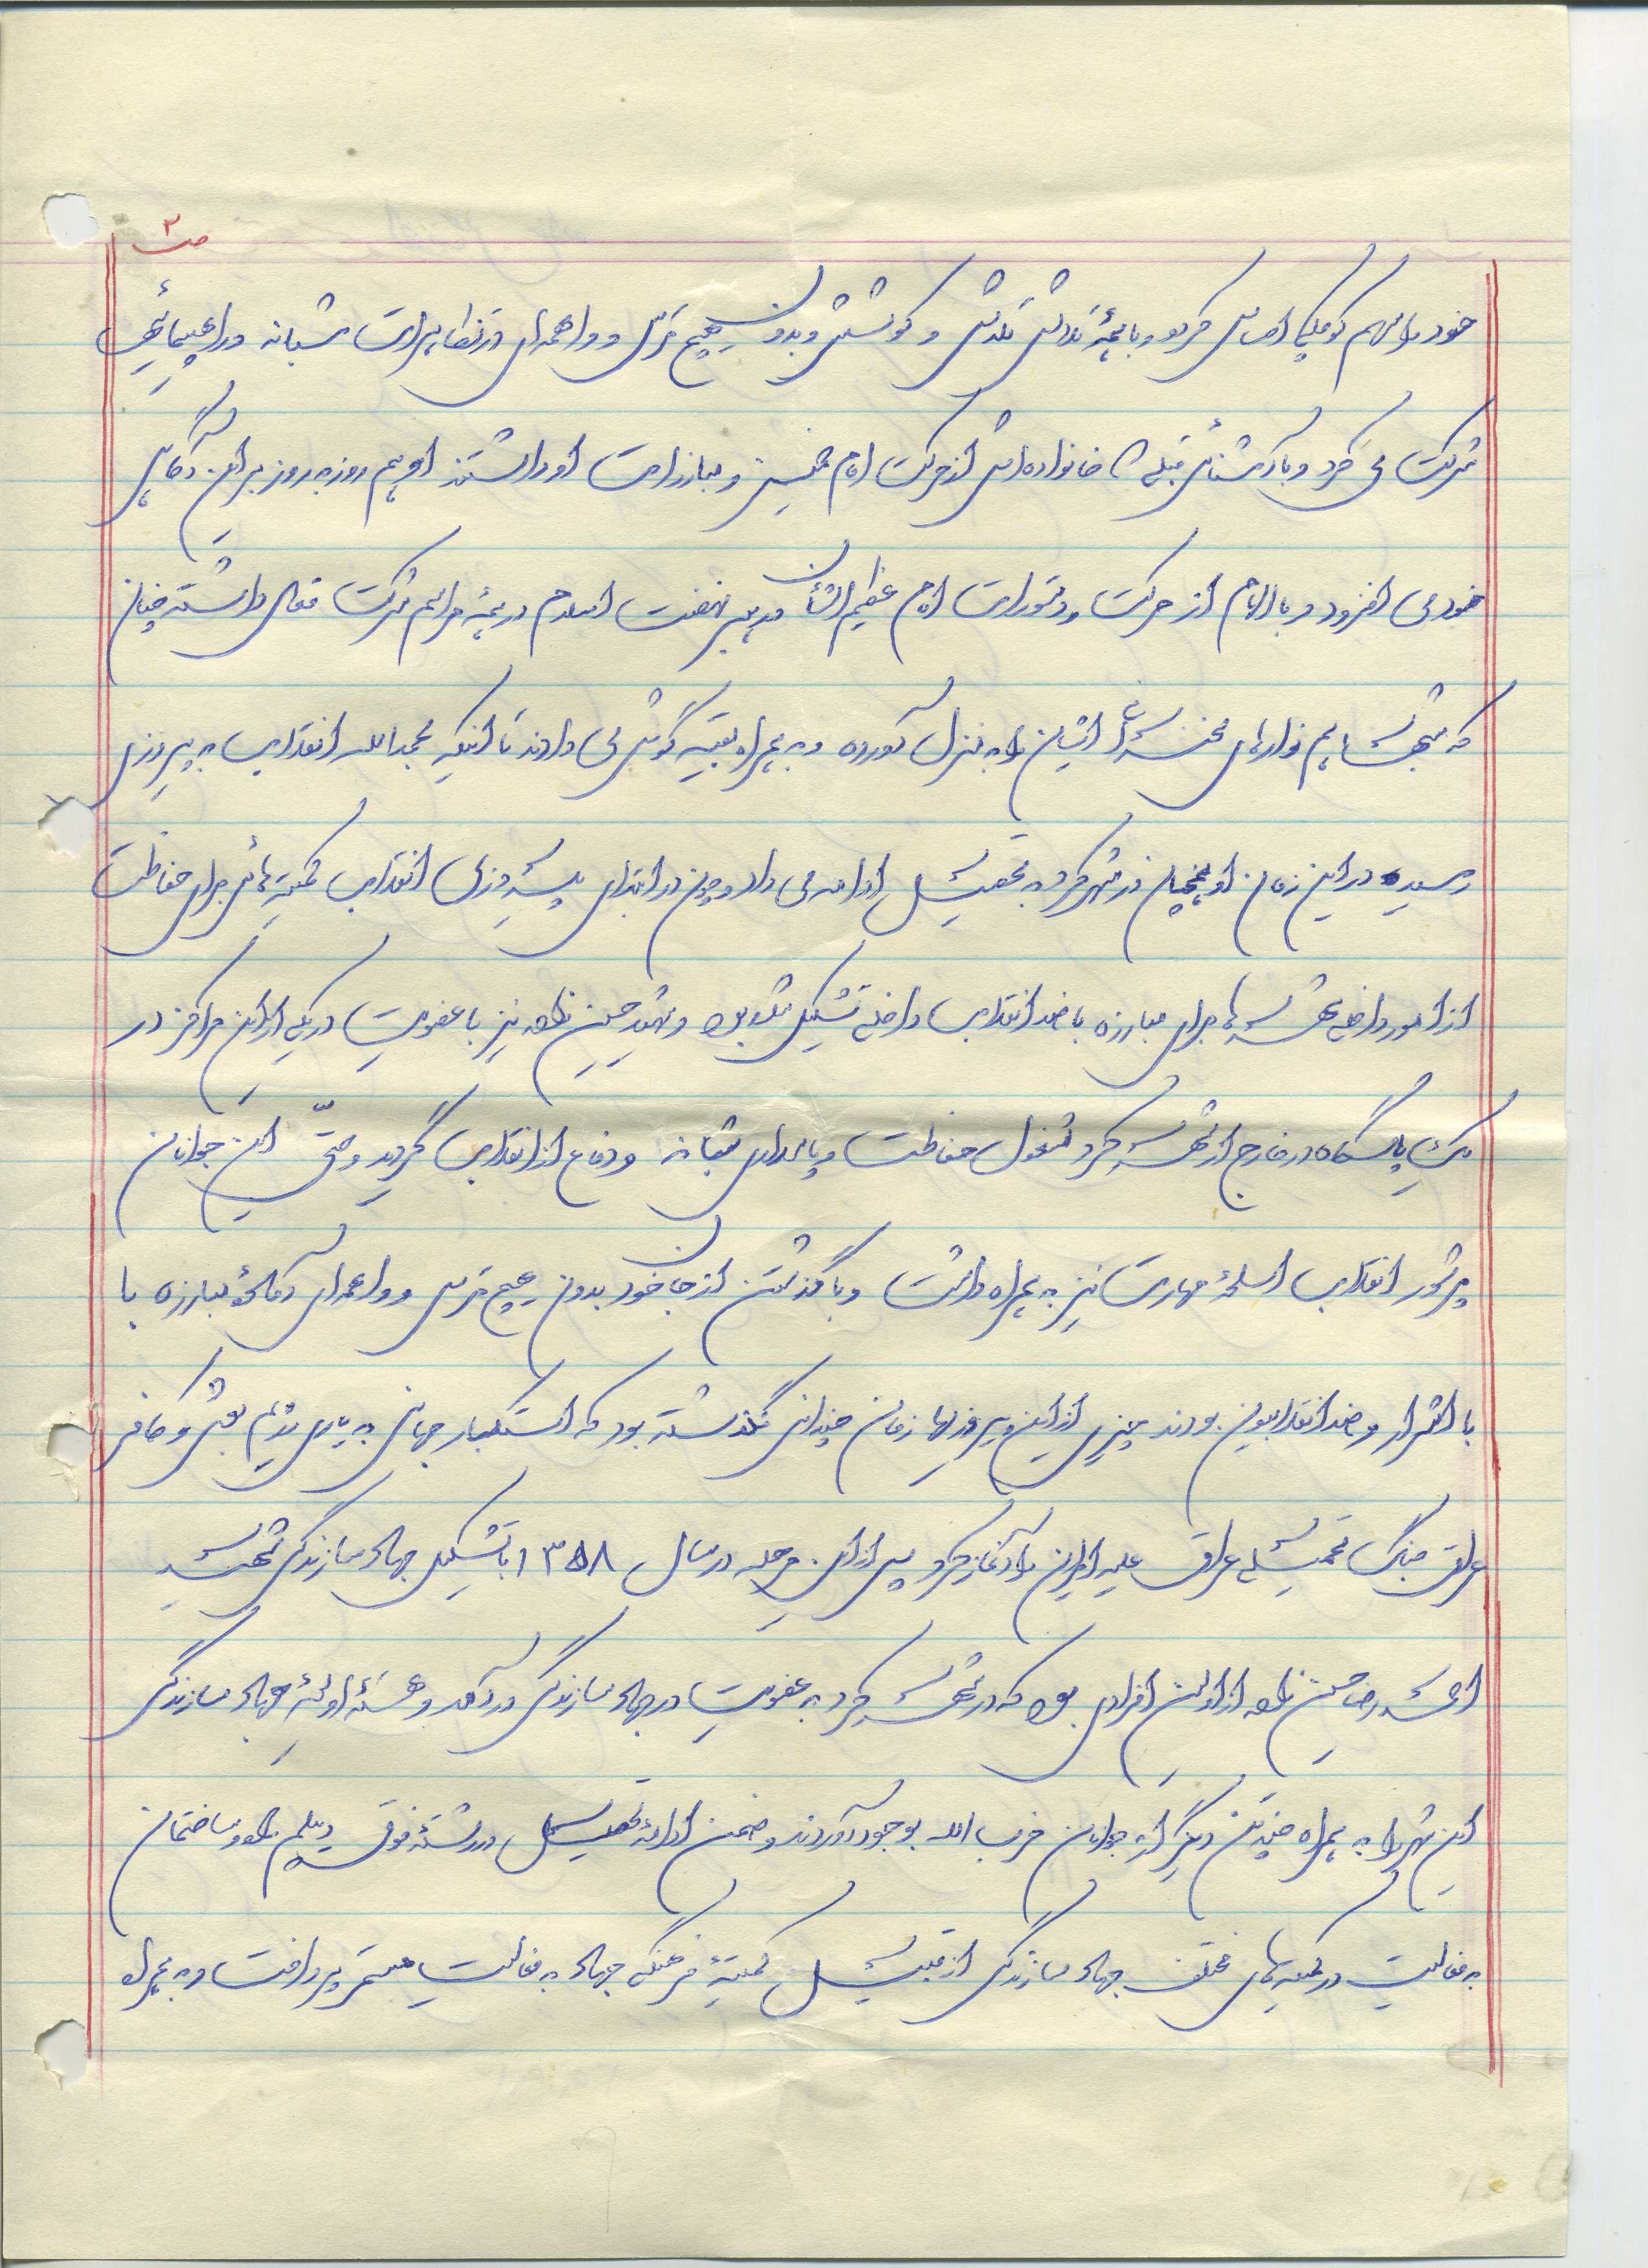 ص ۳
خود را سهم کوچکی احساس کرده و با همهٔ تلاش تلاش و کوشش و بدون هیچ ترس و واهمه‌ای در تظاهرات شبانه و راهپیمائی
شرکت می کرد و با آشنائی قبلی که خانواده‌اش از حرکت امام خمینی و مبارزات او داشتند او هم روز به روز بر این آگاهی
خود می افزود و با الهام از حرکت و دستورات امام عظیم الشأن رهبر نهضت اسلام در همهٔ مراسم شرکت فعال داشته چنان
که شبها هم نوارهای سخنرانی ایشان را به منزل آورده و به همراه بقیه گوش می دادند تا اینکه بحمدالله انقلاب به پیروزی
رسید در این زمان او همچنان در شهرکرد به تحصیل ادامه می داد و چون در ابتدای پیروزی انقلاب کمیته هائی برای حفاظت
از امور داخلی شهرها برای مبارزه با ضد انقلاب داخلی تشکیل شده بود و شهید حسین زاده نیز با عضویت در یکی از این مراکز در
یک پاسگاه در خارج از شهرکرد مشغول حفاظت و پاسداری شبانه و دفاع از انقلاب گردید و حتی این جوانان
پرشور انقلاب اسلحهٔ مهارت نیز به همراه داشت و با گذشتن از جان خود بدون هیچ ترس و واهمه‌ای آمادهٔ مبارزه با
با اشرار و ضد انقلابیون بودند چیزی از این پیروزیها زمان چندانی نگذشته بود که استکبار جهانی به یاری رژیم بعثی و کافر
عراق جنگ تحمیلی عراق علیه ایران را آغاز کرد پس از این مرحله در سال ۱۳۵۸ با تشکیل جهاد سازندگی شهید
امیررضا حسین زاده از اولین افرادی بود که در شهرکرد به عضویت در جهاد سازندگی در آمد و هستهٔ اولیهٔ جهاد سازندگی
این شهر را به همراه چند تن دیگر از جوانان حزب الله بوجود آوردند و ضمن ادامهٔ تحصیل در رشتهٔ فوق دیپلم راه و ساختمان
به فعالیت در کمیته های مختلف جهاد سازندگی از قبیل کمیتهٔ فرهنگی جهاد به فعالیت مستمر پرداخت و به همراه